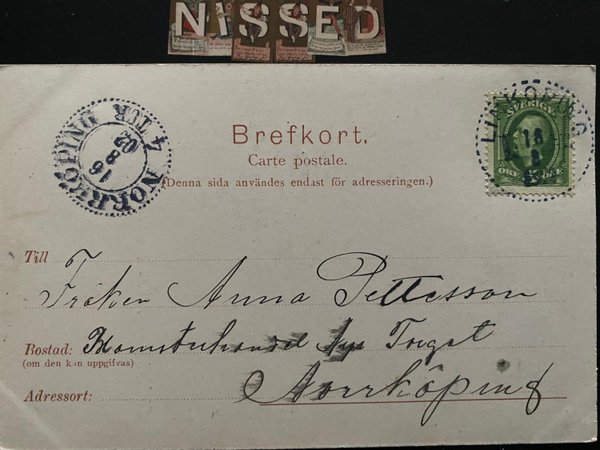 NISSED
NORRKÖPING
4 TUR
16
8
02
Brefkort.
Carte postale.
(Denna sida användes endast för adresseringen.)
LINKÖPING
16
8
SVERIGE
ÖRE
ÖRE
Till
Fröken Anna Pettesson
Bostad: Blomsterhandel Nya Torget
(om den kan uppgifvas)
Norrköping
Adressort: